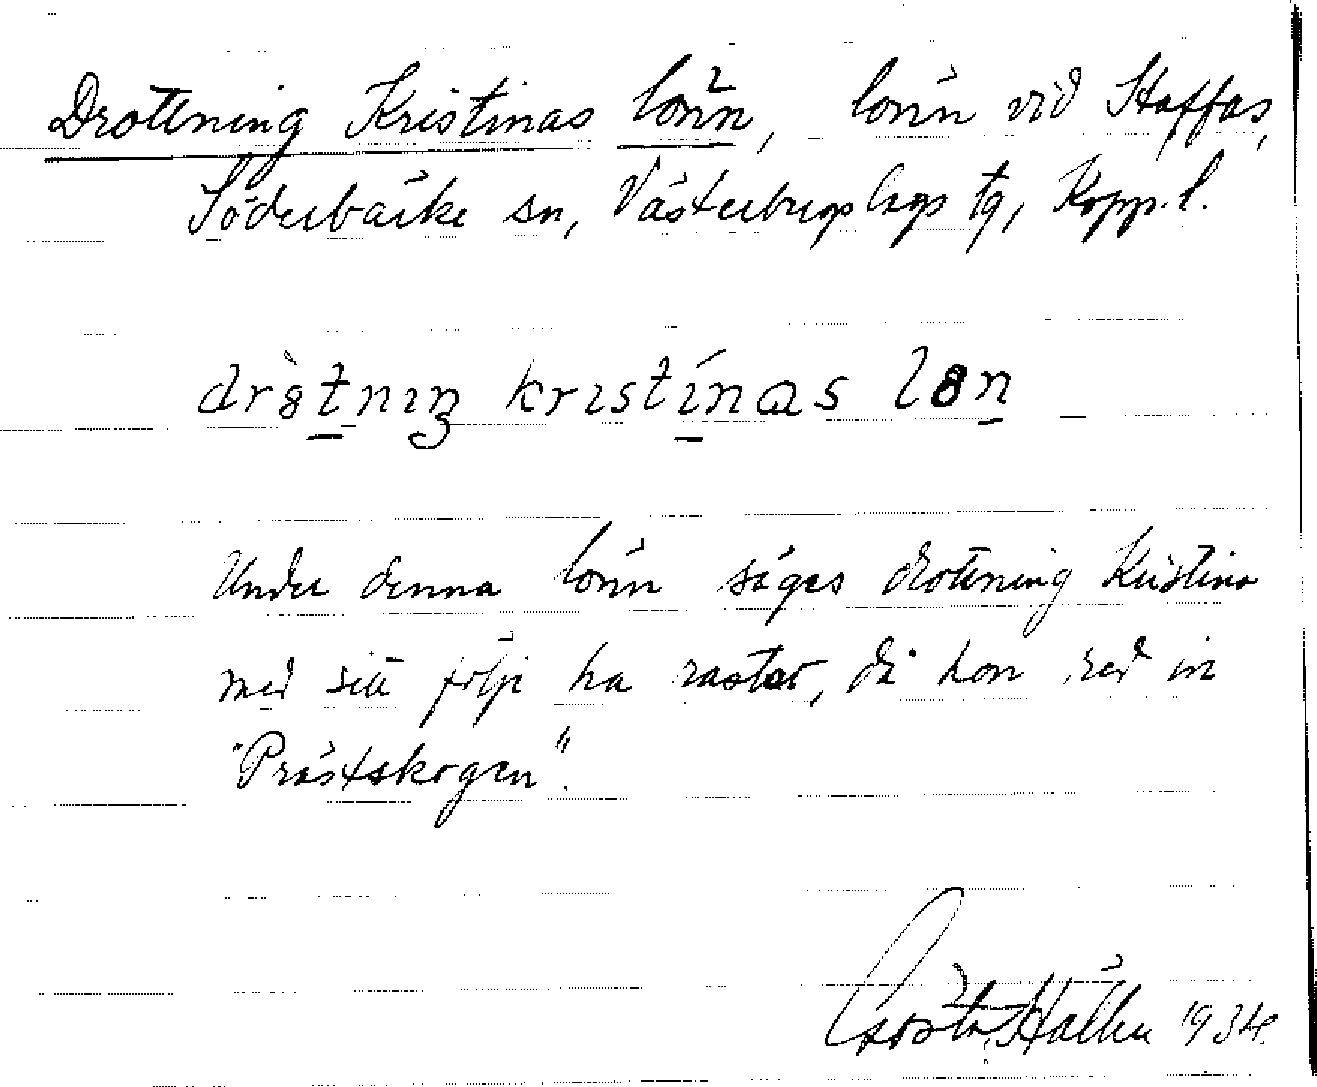 Drottning Kristinas lönn, lönn vid Staffas,
Söderbärke sn, Västerbergslags tg, Kopp. l.
drȯtnıŋ krıstínas lön
Under denna lönn säges drottning Kristina
med sitt följe ha rastat, då hon red in
"Prästskogen".
Gösta Hallén 1934.